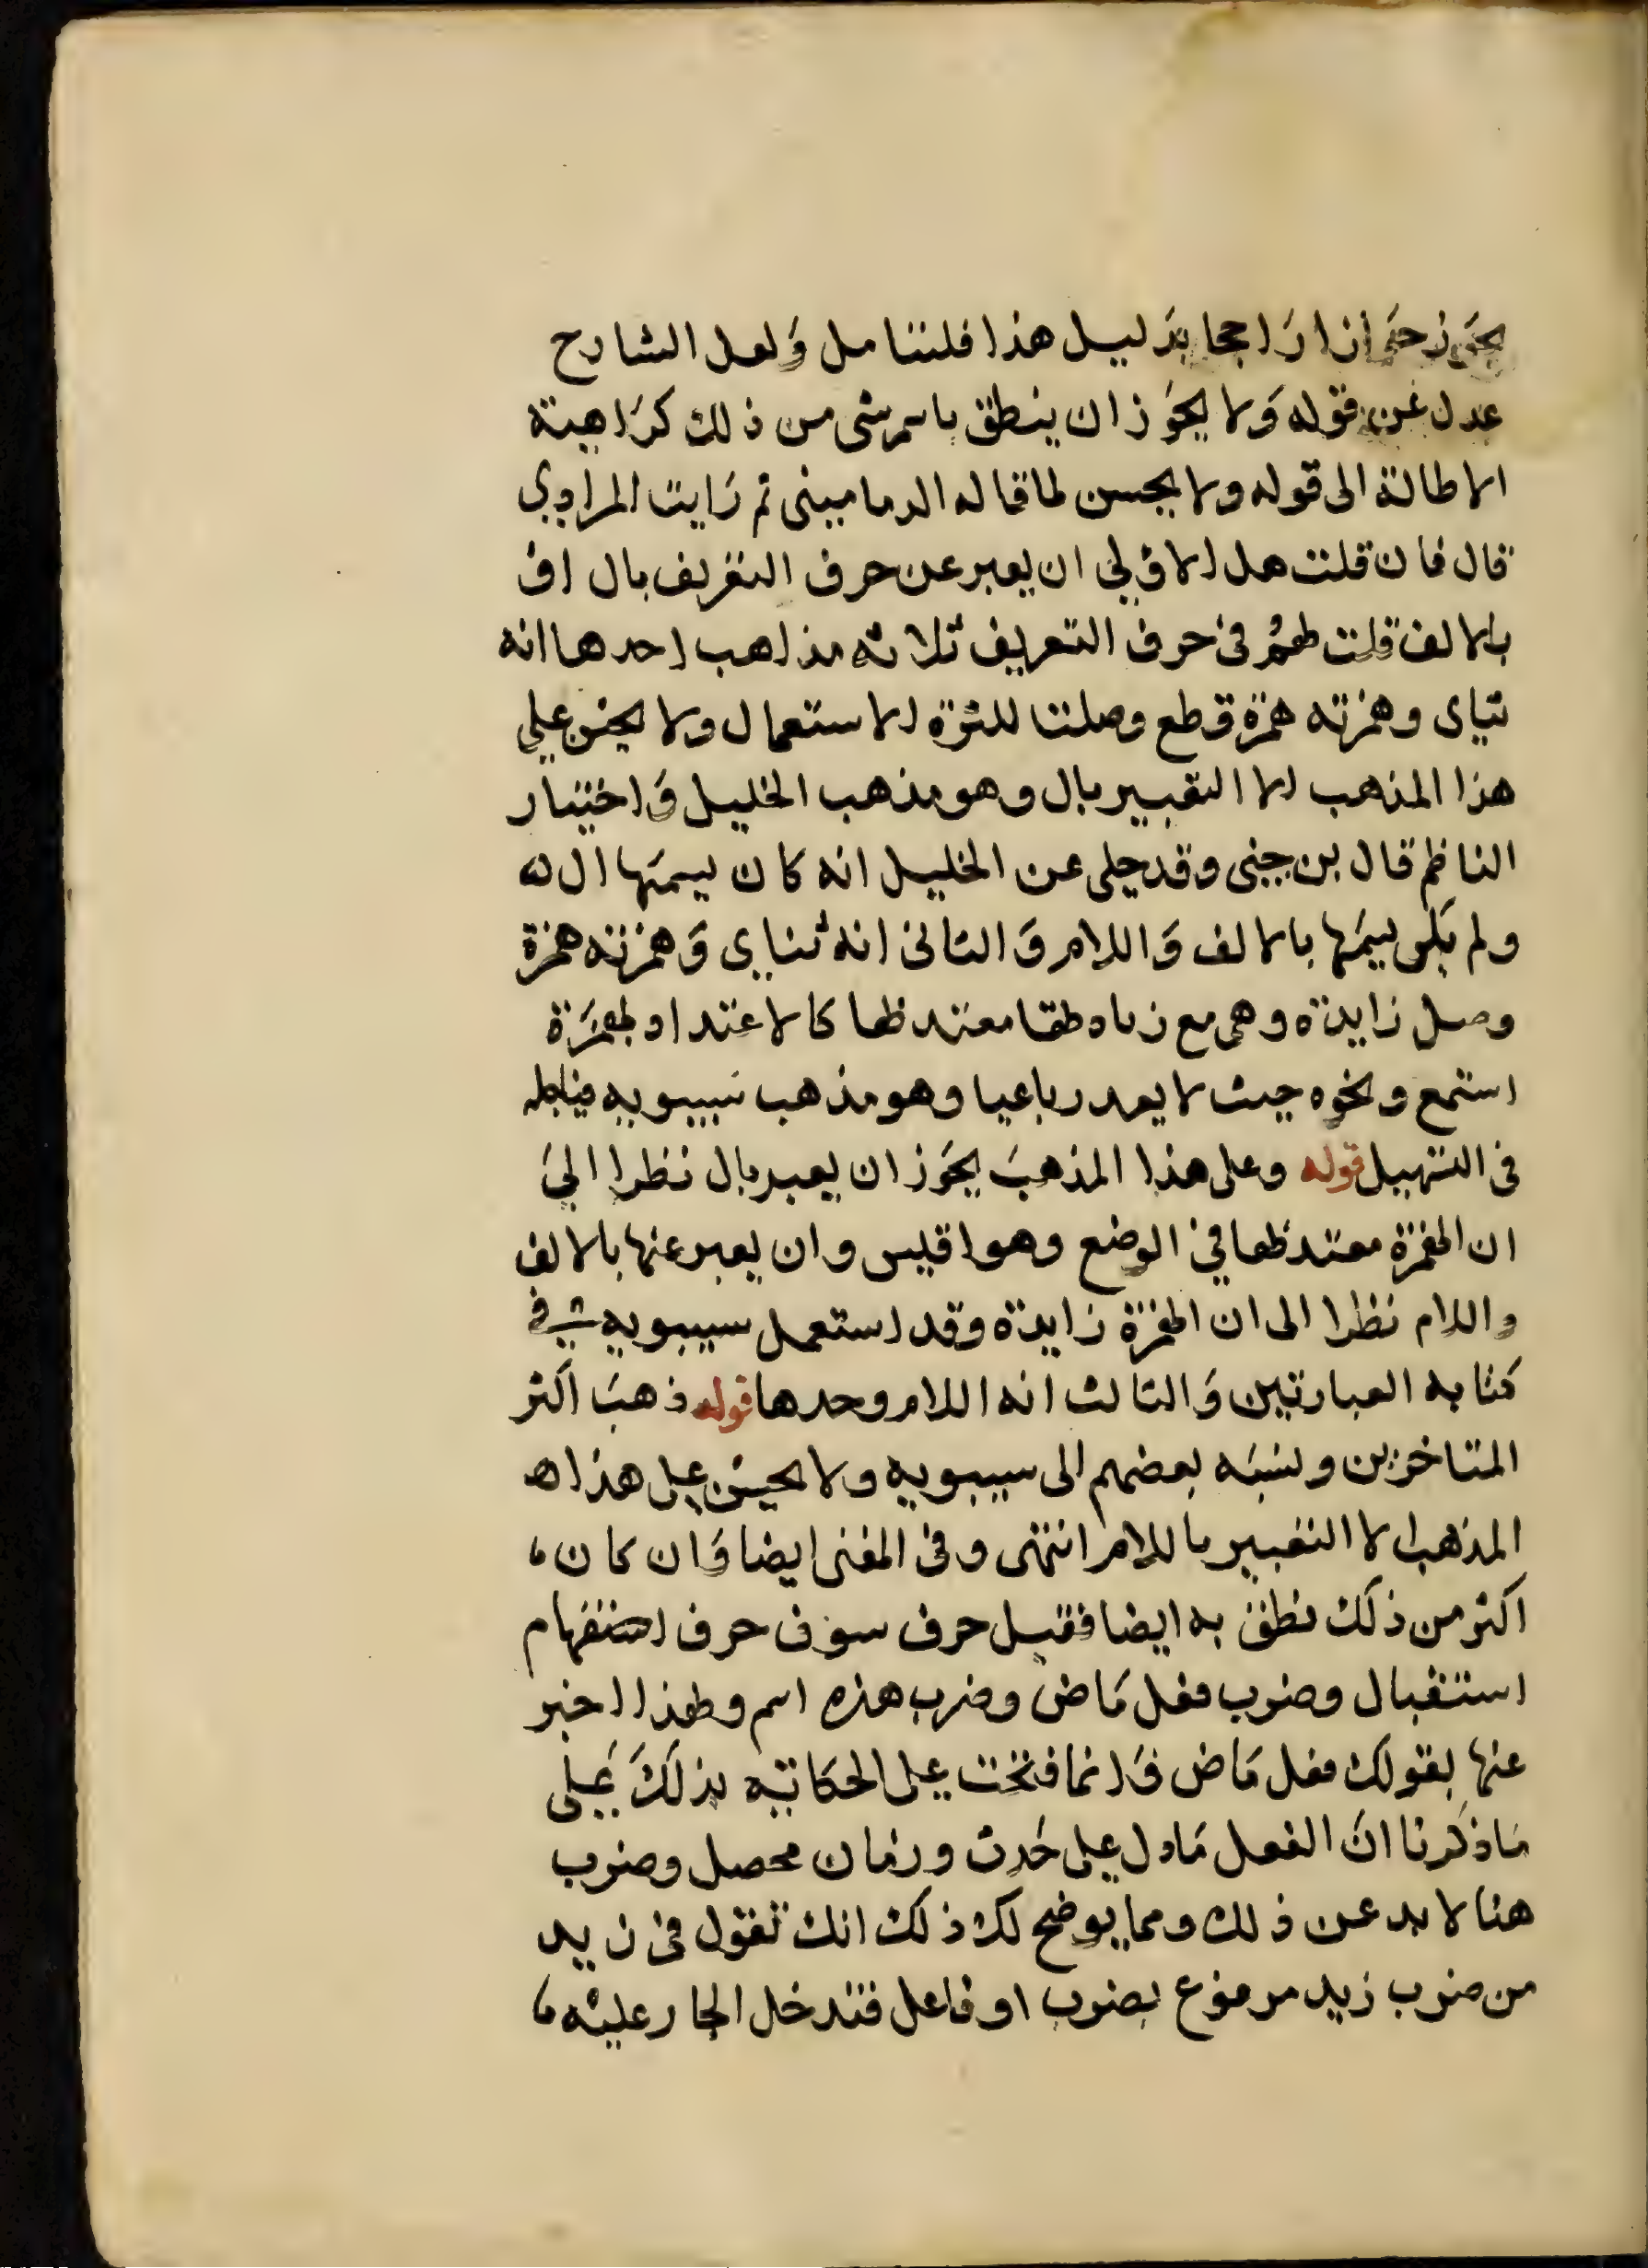 يجوز جوازا راجحا بدليل هذا فليتامل ولعل الشارح
عدل عن قوله ولا يجوز ان ينطق باسم شى من ذلك كراهية
الاطالة الى قوله ولا يحسن لما قاله الدمامينى ثم رايت المرادي
قال فان قلت هل الاولي ان يعبر عن حرف التعريف بال او
بالالف قلت لهم فى حرف التعريف ثلاثه مذاهب احدها انه
ثناى وهمزته همزة قطع وصلت لكثرة الاستعمال ولا يحسن علي
هذا المذهب الا التعبير بال وهو مذهب الخليل واختيار
الناظم قال بن جنى وقد حكى عن الخليل انه كان يسميها ال
ولم يكن يسميها بالالف واللام والثانى انه ثناىي وهمزته همزة
وصل زايدة وهى مع زيادطها معتد لها كالاعتداد بهمزة
استمع ونحوه حيث لا يعد رباعيا وهو مذهب سيبويه فيما نقله
فى التسهيل قوله وعلى هذا المذهب يجوز ان يعبر بال نظرا الي
ان الهمزة معتد لها في الوضع وهو اقيس وان يعبر عنها بالالف
واللام نظرا الى ان الهمزة زايدة وقد استعمل سيبويه في
كتابه العبارتين والثالث انه اللام وحدها قوله ذهب اكثر
المتاخرين ونسبه بعضهم الى سيبويه ولا يحسن على هذا
المذهب الا التعبير باللام انتهى وفى المغنى ايضا وان كان
اكثر من ذلك نطق به ايضا فقيل حرف سوف حرف استفهام
استقبال وضرب فعل ماض وضرب هذه اسم ولهذا اخبر
عنها بقولك فعل ماض وانما فتحت على الحكاتيه بذلك على
ماذكرنا ان الفعل مادل على حدث وزمان محصل وضرب
هنا لا يد عن ذلك ومما يوضح لك ذلك انك تقول فى زيد
من ضرب زيد مرفوع بضرب او فاعل فتدخل الجار عليه